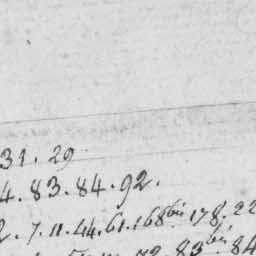 31. 29
4. 83. 84. 92.
2. 7. 11. 44. 61. 168bis 178. 22
79. 83bis 84